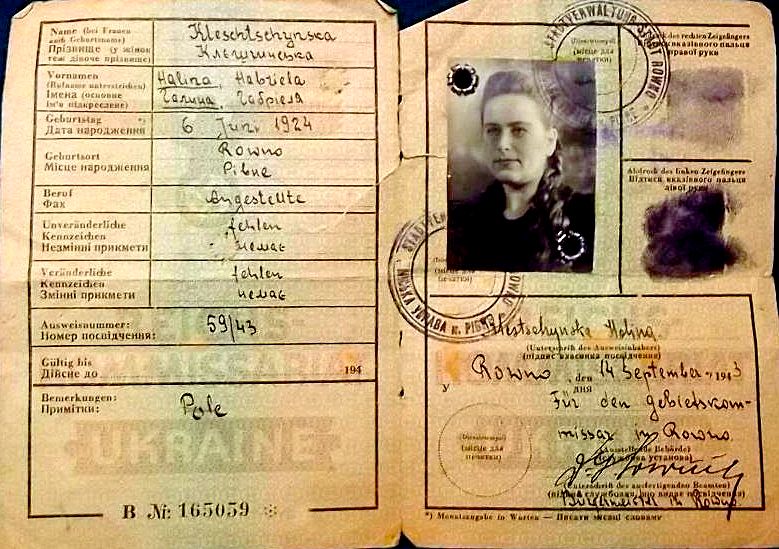 Name (bei Frauen auch Geburtsname)
Kleschtschynska
Прізвище (у жінок теж дівоче прізвище)
Клещинська
Vornamen
(Rufname unterstreichen)
Halina, Gabriela
Імена (основне ім'я підкреслене)
Галина, Габріела
Geburtstag *)
Дата народження
6 Juni 1924
Geburtsort
Місце народження
Rowno
Рівне
Beruf
Фах
Angestellte
Unveränderliche
Kennzeichen
Незмінні прикмети
fehlen
немає
Veränderliche
Kennzeichen
Змінні прикмети
fehlen
немає
Ausweisnummer:
Номер посвідчення:
59/43
Gültig bis
Дійсне до 194
Bemerkungen:
Примітки:
Pole
UKRAINE
B № 165059
STADTVERWALTUNG STADT ROWNO
(Dienststempel)
(місце для печатки)
Abdruck des rechten Zeigefingers
Відтиск вказівного пальця
правої руки
Abdruck des linken Zeigefingers
Відтиск вказівного пальця
лівої руки
УПРАВА м. РІВНЕ
Kleschtschynska Halina
(Unterschrift des Ausweisinhabers)
(підпис власника посвідчення)
У Rowno, den 14 September 1943
дня
Für den Gebietskom-
missar in Rowno
(Dienststempel)
(місце для печатки)
(Ausstellende Behörde)
(службова установа)
(Unterschrift des ausfertigenden Beamten)
(підпис службовця, що видає посвідчення)
Bürgermeister in Rowno
*) Monatsangabe in Worten — Писати місяці словами